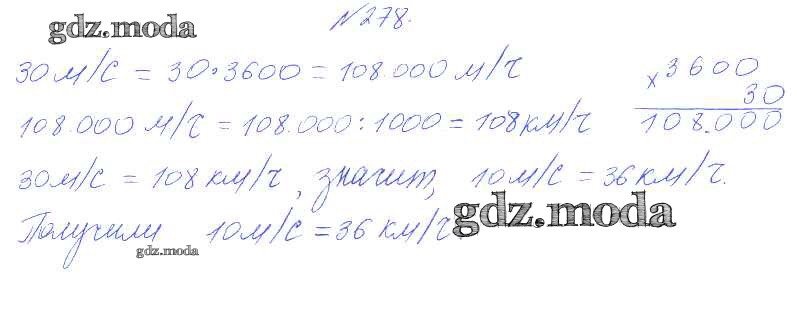 №278.
gdz.moda
30 м/с = 30·3600 = 108.000 м/ч
× 3600
30
108.000
108.000 м/ч = 108.000 : 1000 = 108 км/ч
30 м/с = 108 км/ч, значит, 10 м/с = 36 км/ч.
gdz.moda
Получили 10 м/с = 36 км/ч.
gdz.moda